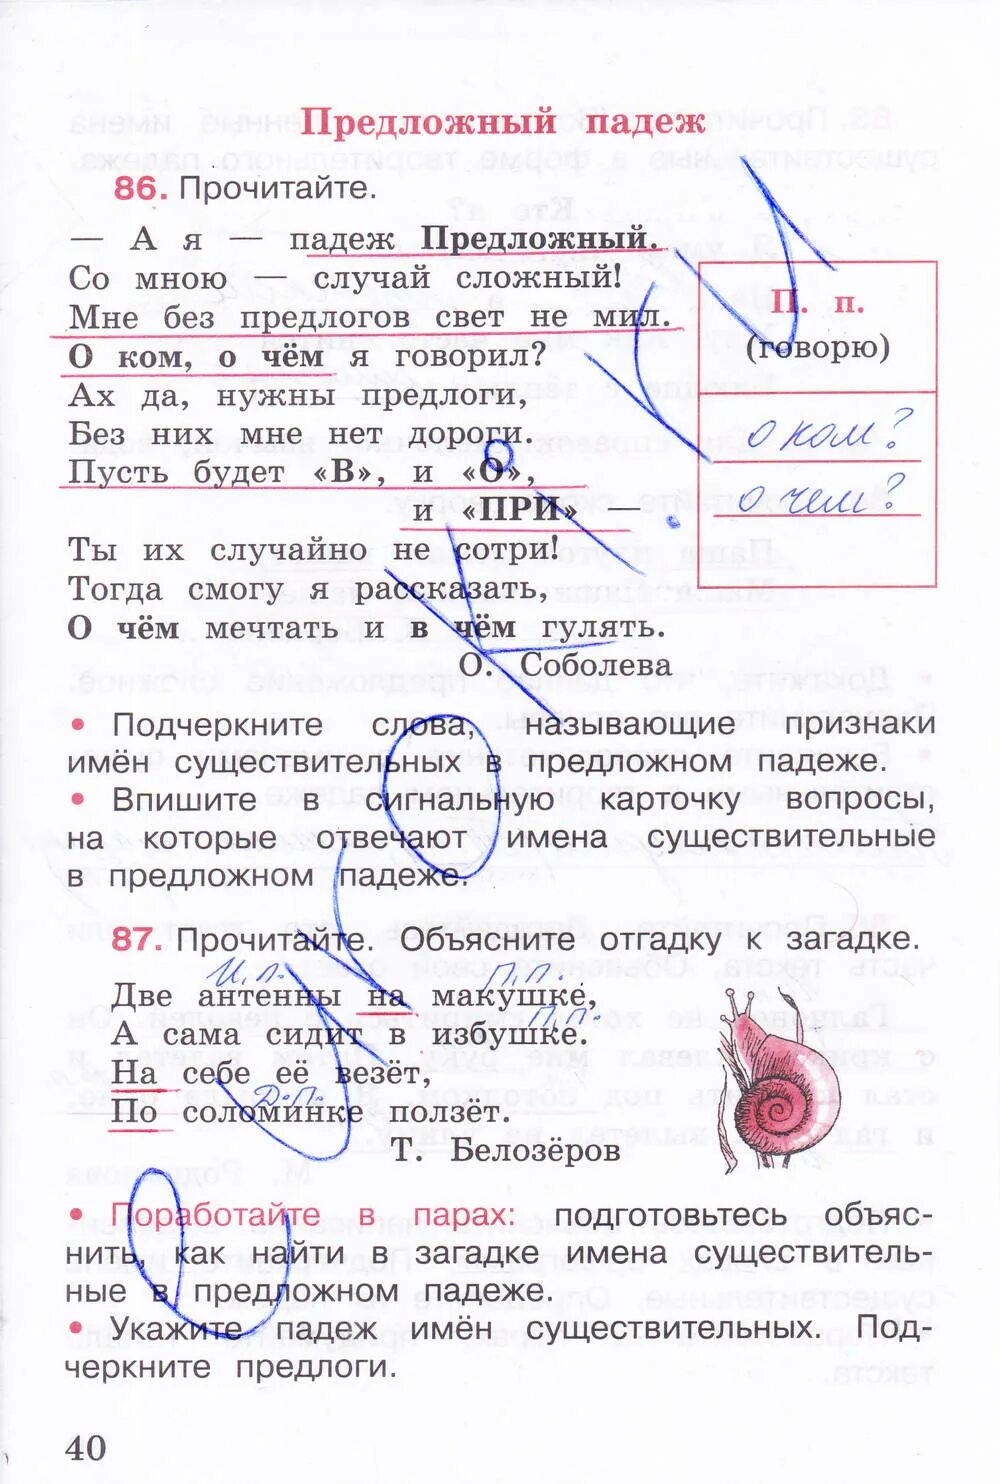 Предложный падеж
86. Прочитайте.
— А я — падеж Предложный.
Со мною — случай сложный!
Мне без предлогов свет не мил.
О ком, о чём я говорил?
Ах да, нужны предлоги,
Без них мне нет дороги.
Пусть будет «В», и «О»,
и «ПРИ» —
Ты их случайно не сотри!
Тогда смогу я рассказать,
О чём мечтать и в чём гулять.
О. Соболева
П. п.
(говорю)
о ком?
о чем?
• Подчеркните слова, называющие признаки
имён существительных в предложном падеже.
• Впишите в сигнальную карточку вопросы,
на которые отвечают имена существительные
в предложном падеже.
87. Прочитайте. Объясните отгадку к загадке.
И.п. П.п.
Две антенны на макушке,
П.п.
А сама сидит в избушке.
На себе её везёт,
Д.п.
По соломинке ползёт.
Т. Белозёров
• Поработайте в парах: подготовьтесь объяс-
нить, как найти в загадке имена существитель-
ные в предложном падеже.
• Укажите падеж имён существительных. Под-
черкните предлоги.
40